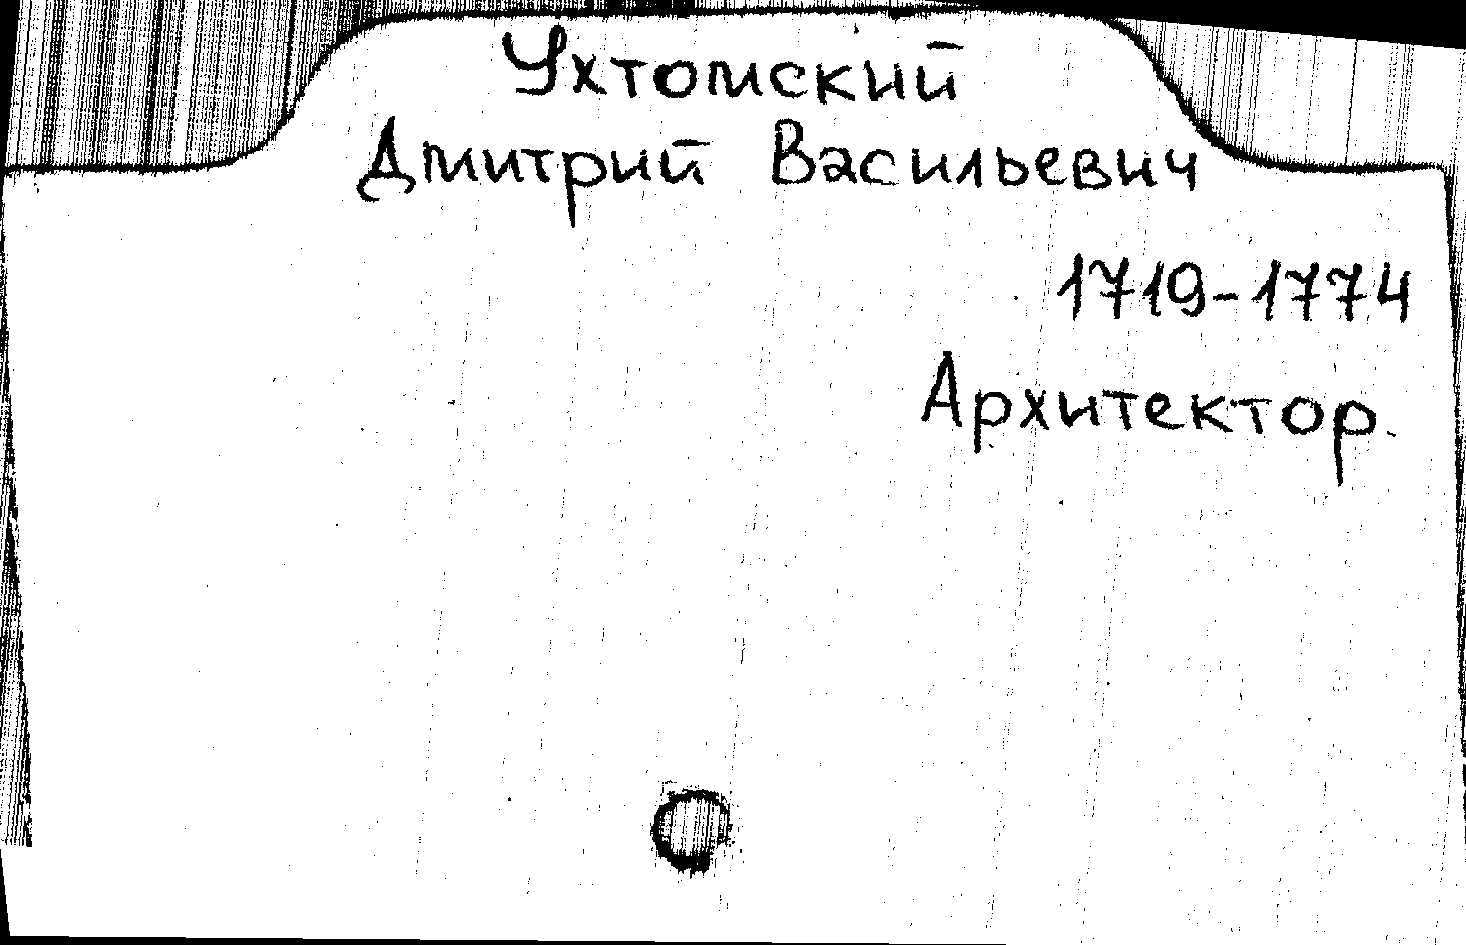 Ухтомский
Дмитрий Васильевич
1719-1774
Архитектор.